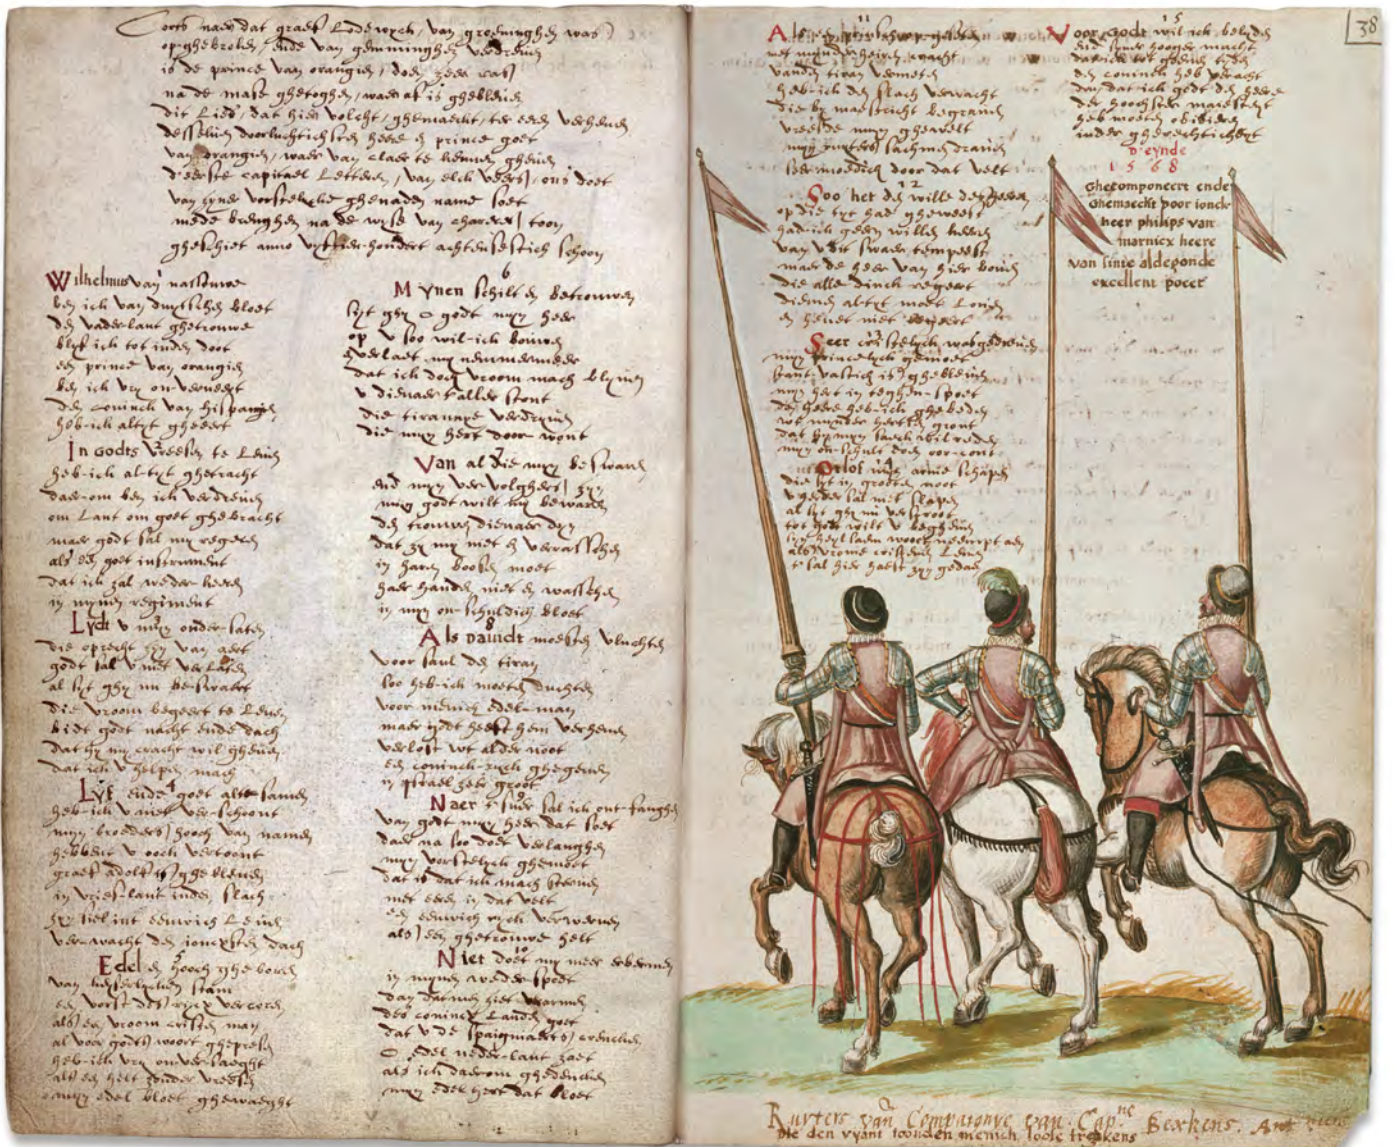 Corts naer dat graef Lodewyck, van groeninghen was
op-ghebroken, ende van gemminghen verdreven
is de prince van orangien, doen zeer ras
na de mase ghetoghen, waer af is ghebleven
dit Lied, dat hier volcht, ghemaeckt, ter eeren verheven
desselven doorluchtichsten heere en prince goet
van orangien, waer van claer te kennen gheven
d'eerste capitael Letteren, van elck veers, ons doet
van zyner vorstelycke ghenaden name soet
mede brenghen na de wyse van charters toon
gheschiet anno vyfthien-hondert achtensestich schoon
Wilhelmus van nassouwe
ben ick van duytschen bloet
den vaderlant ghetrouwe
blyf ick tot inden doot
een prince van orangien
ben ick vry on-verveert
den coninck van hispangien
heb-ick altyt gheeert
In godts vreesen te Leven
heb-ick al-tyt ghetracht
daer-om ben ick verdreven
om Lant om goet ghebracht
maer godt sal my regeren
als een goet instrument
dat ick zal weder-keeren
in mynen regiment
Lydt u myn onder-saten
die oprecht zyn van aert
godt sal u niet verlaten
al syt ghy nu be-swaert
die vroom begeert te Leven
bidt godt nacht ende dach
dat hy my cracht wil gheven
dat ick u helpen mach
Lyf ende goet alte samen
heb-ick u niet ver-schoont
myn broeders hooch van namen
hebbent u ooch vertoont
graef adolf is ghebleven
in vries-lant inden slach
zyn siel int eewich Leven
ver-wacht den joncxsten dach
Edel en hooch ghe-boren
van keyserlycken stam
een vorst des rycx vercoren
als een vroom cristen man
al voor godts woort ghepresen
heb-ick vry onver-saeght
als een helt zonder vreesen
myn edel bloet ghewaeght
6
Mynen schilt en betrouwen
syt ghy o godt myn heer
op u soo wil-ick bouwen
verlaet my nemmermeer
dat ick doch vroom mach blyven
u dienaer t'aller stont
die tirannye verdryven
die myn hert door-wont
Van al die myn beswaren
end myn ver-volghers zyn
myn godt wilt my bewaren
den trouwen dienaer dyn
dat zy my niet en verrasschen
in haren boosen moet
haer handen niet en wasschen
in myn on-schuldich bloet
8
Als davidt moesten vluchten
voor saul den tiran
soo heb-ick moeten duchten
voor menich edel-man
maer godt heeft hem verheven
verlost wt alder noot
een coninck-ryck ghegeven
in israel zeer groot
9
Naer t'suer sal ick ont-fanghen
van godt myn heer dat soet
daer na soo doet verlanghen
myn vorstelyck ghemoet
dat is dat ick mach sterven
met eeren in dat velt
een eewich ryck verwerven
als een ghetrouwe helt
10
Niet doet my meer erbermen
in mynen weder-spoet
dan datmen siet verarmen
des coninck Landen goet
dat u de spaignaerts crencken
o edel neder-lant zaet
als ick daerom ghedencken
myn edel hert dat bloet
11
Als een prins op-geseten
met mynder heiren cracht
vanden tiran vermeten
heb-ick den slach verwacht
die by maestricht begraven
vreesde myn ghewelt
myn ruyters sachmen draven
seer moedich door dat velt
12
Soo het den wille des heeren
op die tyt had gheweest
had-ick geern willen keeren
van u dit swaer tempeest
maer de heer van hier boven
die alle dinck regeert
diemen altyt moet Loven
en hevet niet begeert
13
Seer cristelyck was gedreven
myn princelyck gemoet
stant-vastich is ghebleven
myn hert in teghen-spoet
den heere heb-ick ghebeden
wt mynder herten gront
dat hy myn saeck wil reden
myn on-schult doen oor-cont
14
Orlof myn arme schapen
die syt in grooten noot
u herder sal niet slapen
al syt ghy nu verstroot
tot godt wilt u begheven
syn heylsaem woort neempt aen
als vrome cristenen Leven
t'sal hier haest zyn gedaen
15
Voor godt wil ick belyden
end syner hooger macht
dat ick tot geenen tyden
den coninck heb veracht
dan dat ick godt den heere
der hoochster maiesteyt
heb moeten obidieren
inder gherechticheyt
d'eynde
1568
Ghecomponeert ende
Ghemaeckt door ionck-
heer philips van
marnicx heere
van sinte aldegonde
excellent poeet
38
Ruyters van Compaignye van Capne Berkens. Ant
die den vyant wonden menich loose trekens